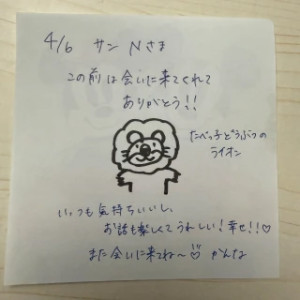 4/6 サンNさま
この前は会いに来てくれて
ありがとう!!
たべっ子どうぶつの
ライオン
いつも気持ちいいし、
お話も楽しくてうれしい!幸せ!!♡
また会いに来てね〜 かんな